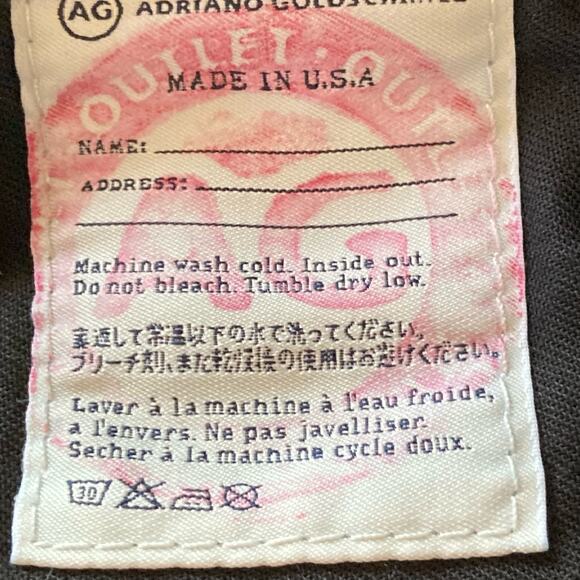 AG ADRIANO GOLDSCHMIED
OUTLET · OUTLET
MADE IN U.S.A
NAME:
ADDRESS:
AG
Machine wash cold. Inside out.
Do not bleach. Tumble dry low.
裏返して常温以下の水で洗ってください。
ブリーチ剤、また乾燥機の使用はお避けください。
Laver à la machine à l'eau froide,
a l'envers. Ne pas javelliser.
Secher à la machine cycle doux.
30